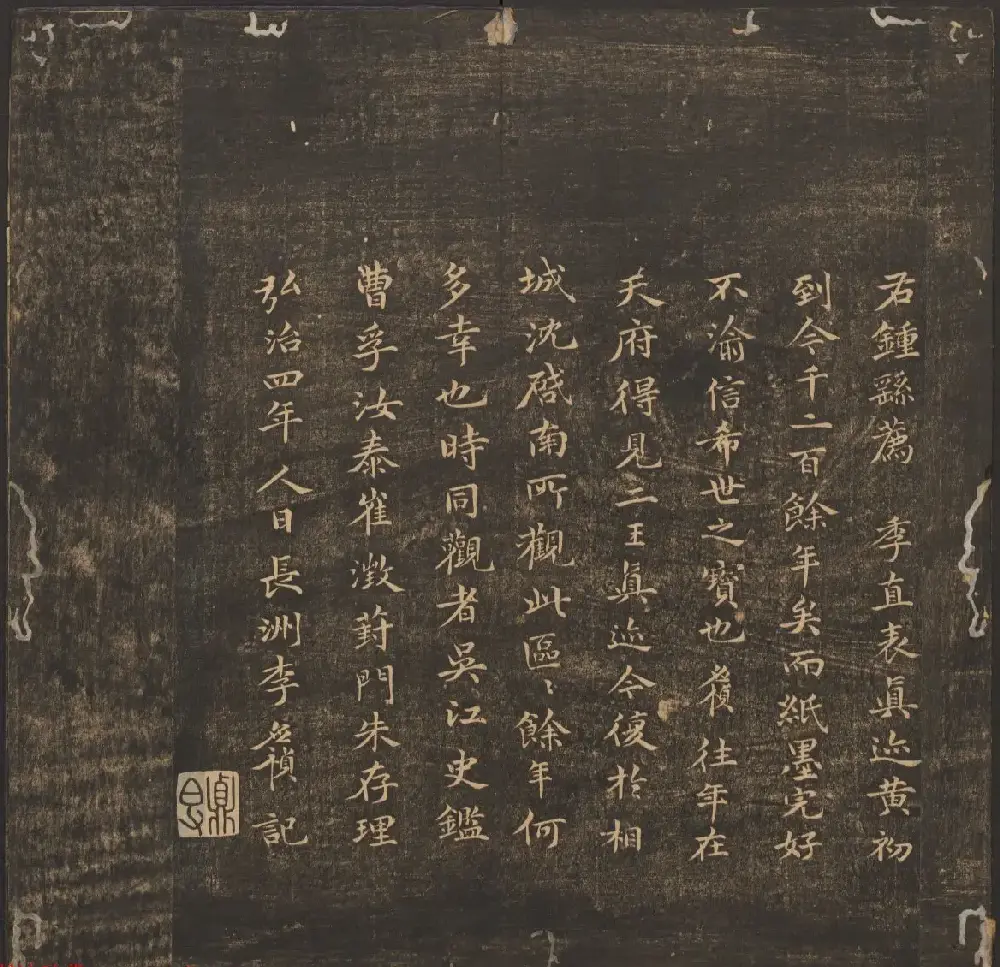 右鍾繇薦 季直表眞迹黄初
到今千二百餘年矣而紙墨完好
不渝信希世之寶也應禎往年在
天府得見二王眞迹今復於相
城沈啓南所觀此區〻餘年何
多幸也時同觀者吳江史鑑
曹孚汝泰崔澂葑門朱存理
弘治四年人日長洲李應禎記